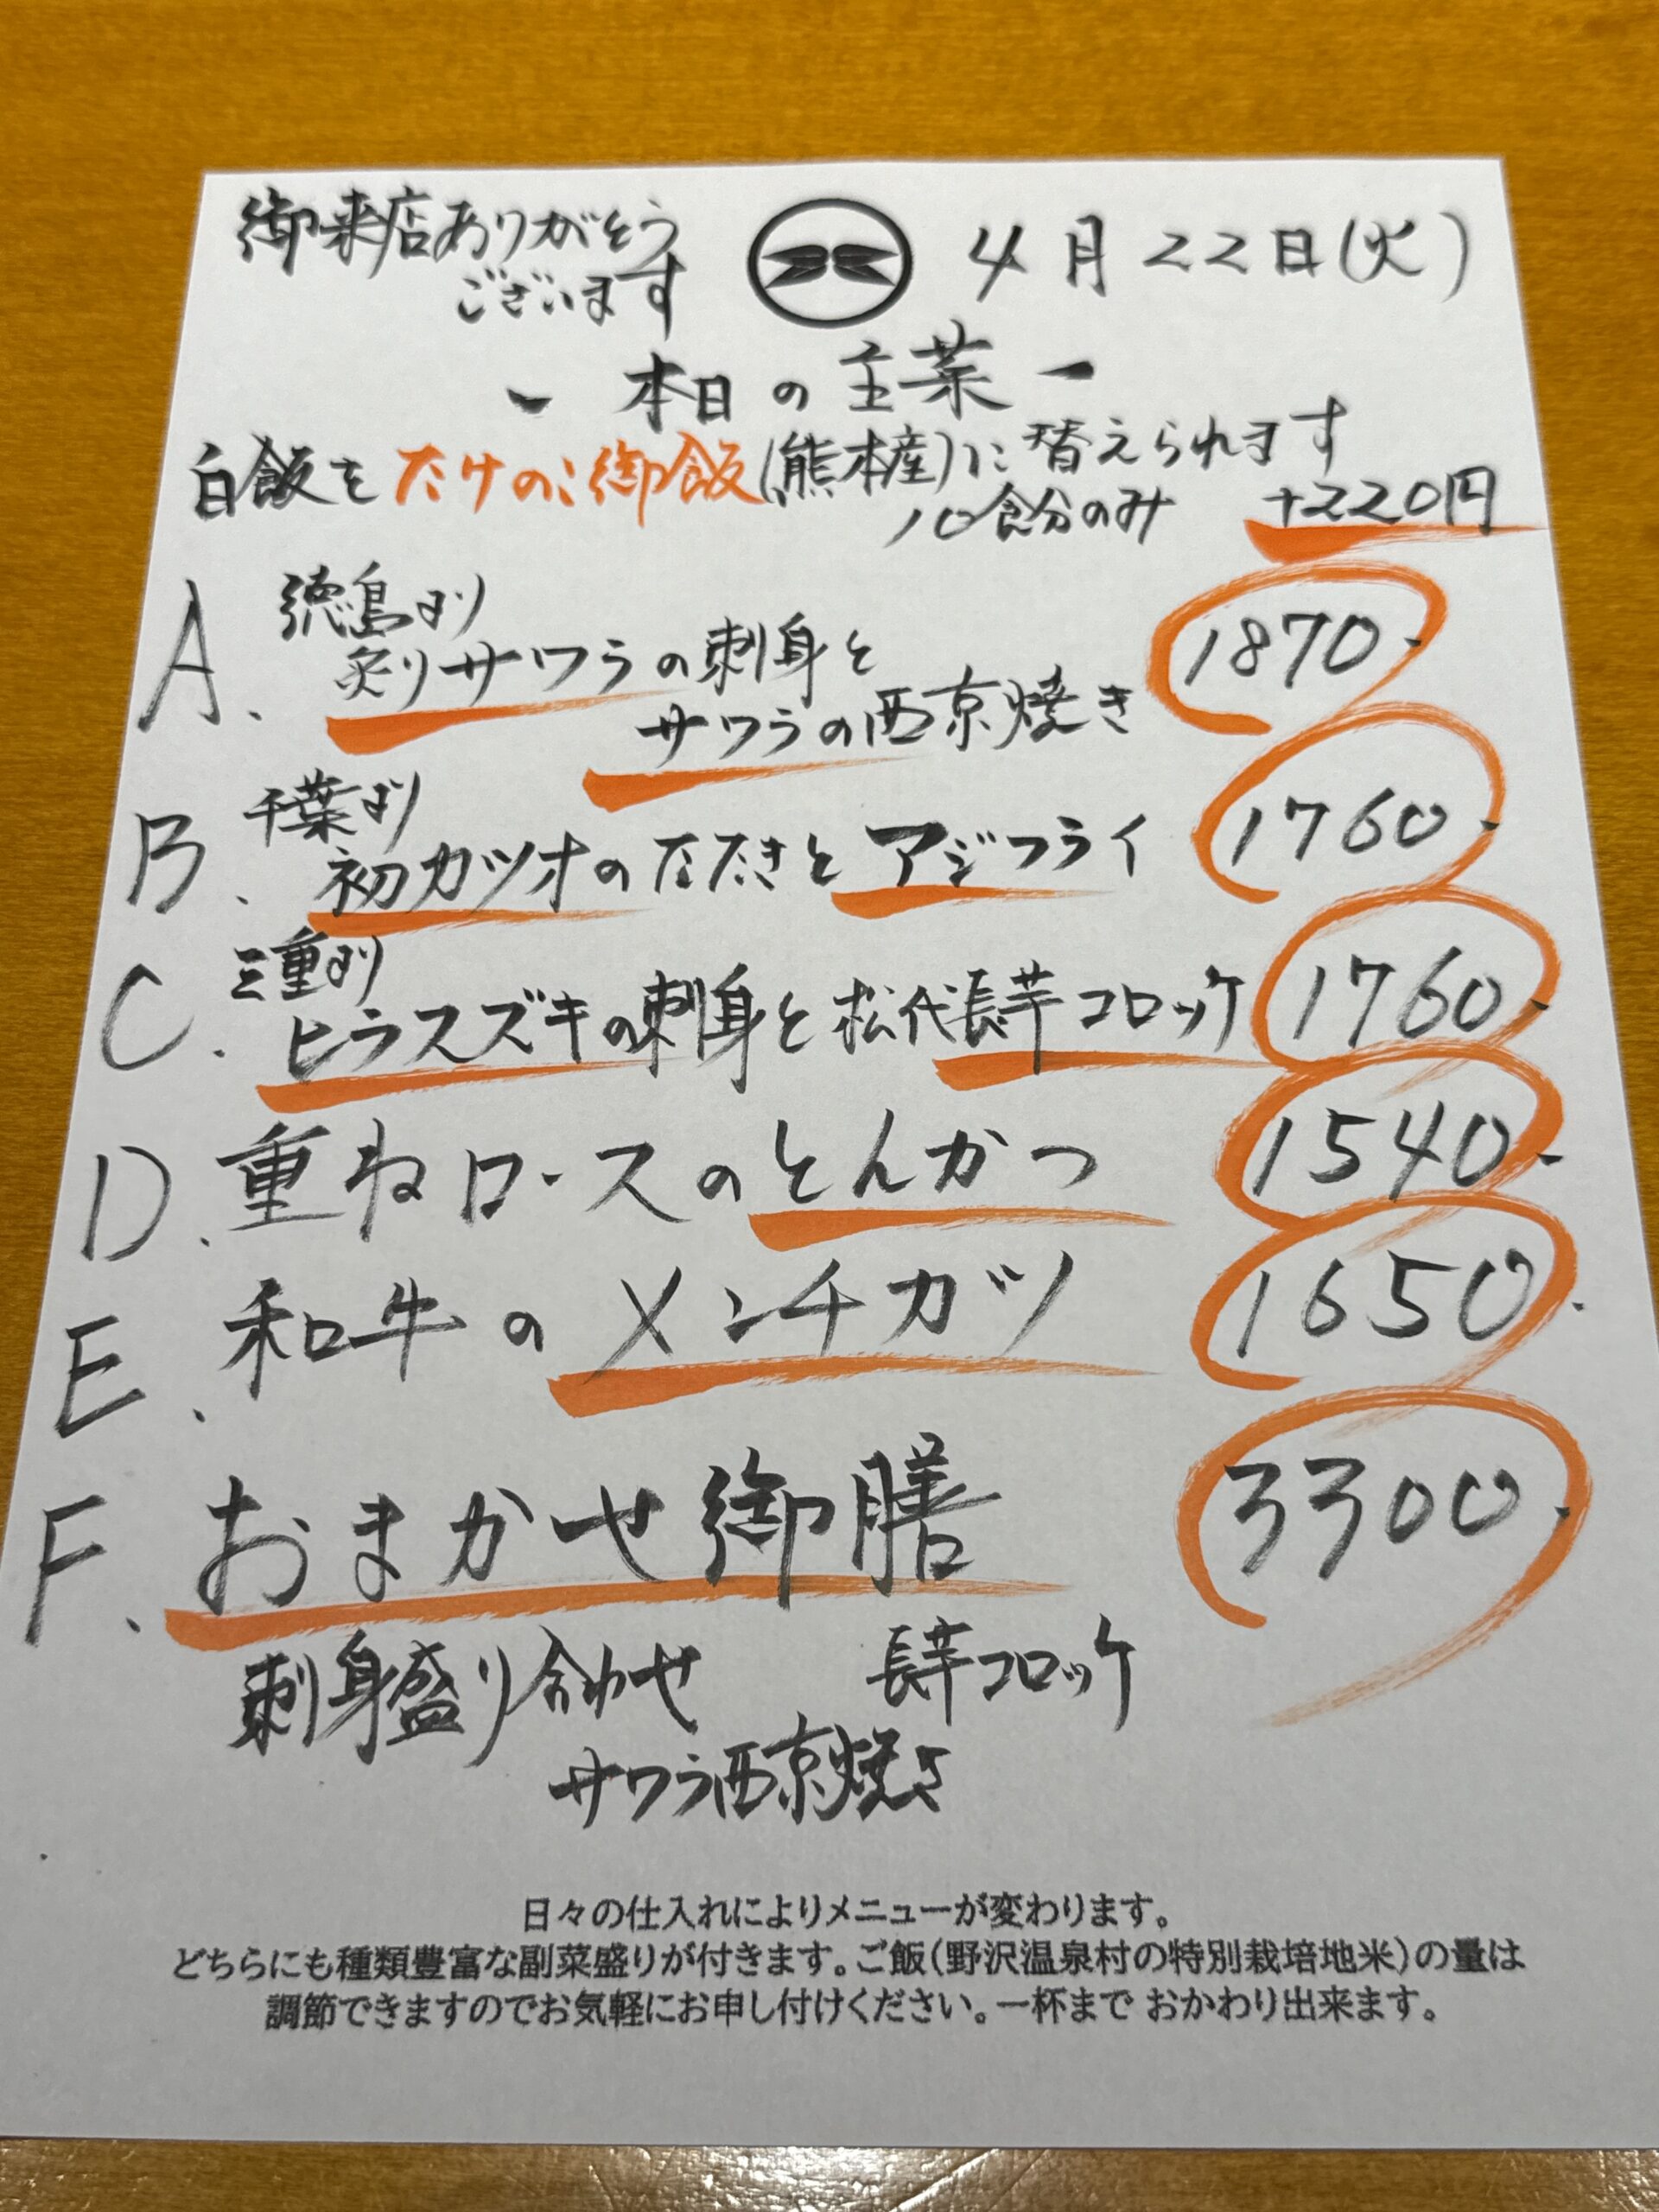 御来店ありがとう
ございます
4月22日(火)
- 本日の主菜 -
白飯をたけのこ御飯(熊本産)に替えられます
10食分のみ +220円
A. 徳島より
炙りサワラの刺身と
サワラの西京焼き
1870-
B. 千葉より
初カツオのたたきとアジフライ 1760-
C. 三重より
ヒラスズキの刺身と松代長芋コロッケ 1760-
D. 重ねロースのとんかつ 1540-
E. 和牛のメンチカツ 1650.
F. おまかせ御膳 3300.
刺身盛り合わせ 長芋コロッケ
サワラ西京焼き
日々の仕入れによりメニューが変わります。
どちらにも種類豊富な副菜盛りが付きます。ご飯(野沢温泉村の特別栽培地米)の量は
調節できますのでお気軽にお申し付けください。一杯まで おかわり出来ます。